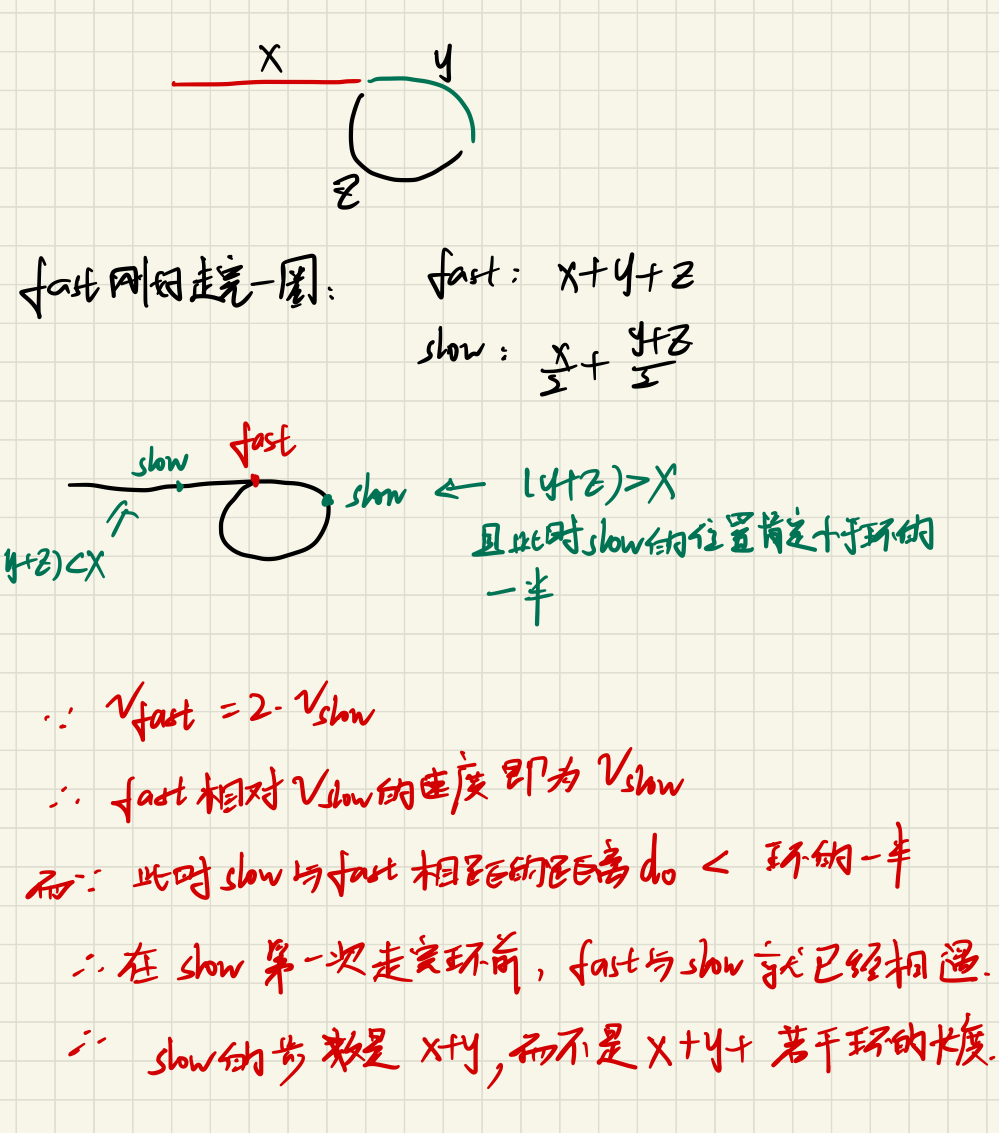 x y
z
fast刚好走完一圈： fast： x+y+z
slow： x/2 + (y+z)/2
fast
slow
slow ← (y+z)>x
y+z)<x
且此时slow的位置肯定小于环的
一半
∵ Vfast = 2·Vslow
∴ fast相对Vslow的速度即为Vslow
而∵ 此时slow与fast相距的距离d₀ < 环的一半
∴ 在slow第一次走完环前，fast与slow就已经相遇.
∴ slow的步数是 x+y，而不是 x+y+ 若干环的长度.